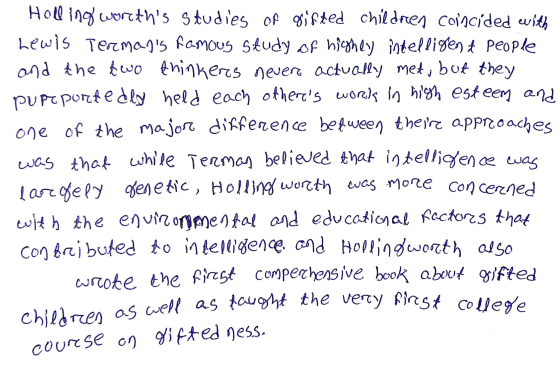 Hollingworth's studies of gifted children coincided with
Lewis Terman's famous study of highly intelligent people
and the two thinkers never actually met, but they
purportedly held each other's work in high esteem and
one of the major difference between their approaches
was that while Terman believed that intelligence was
largely genetic, Hollingworth was more concerned
with the environmental and educational factors that
contributed to intelligence and Hollingworth also
wrote the first comperhensive book about gifted
children as well as taught the very first college
course on giftedness.